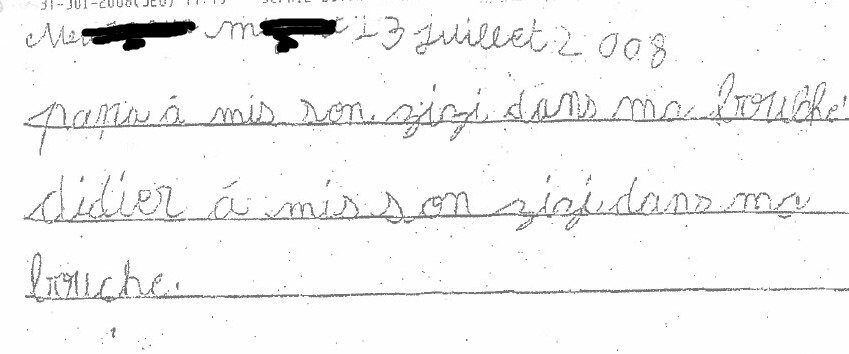 31-JUI-2008(JEU)
13 juillet 2008
papa á mis son zizi dans ma bouche
didier á mis son zizi dans ma
bouche.